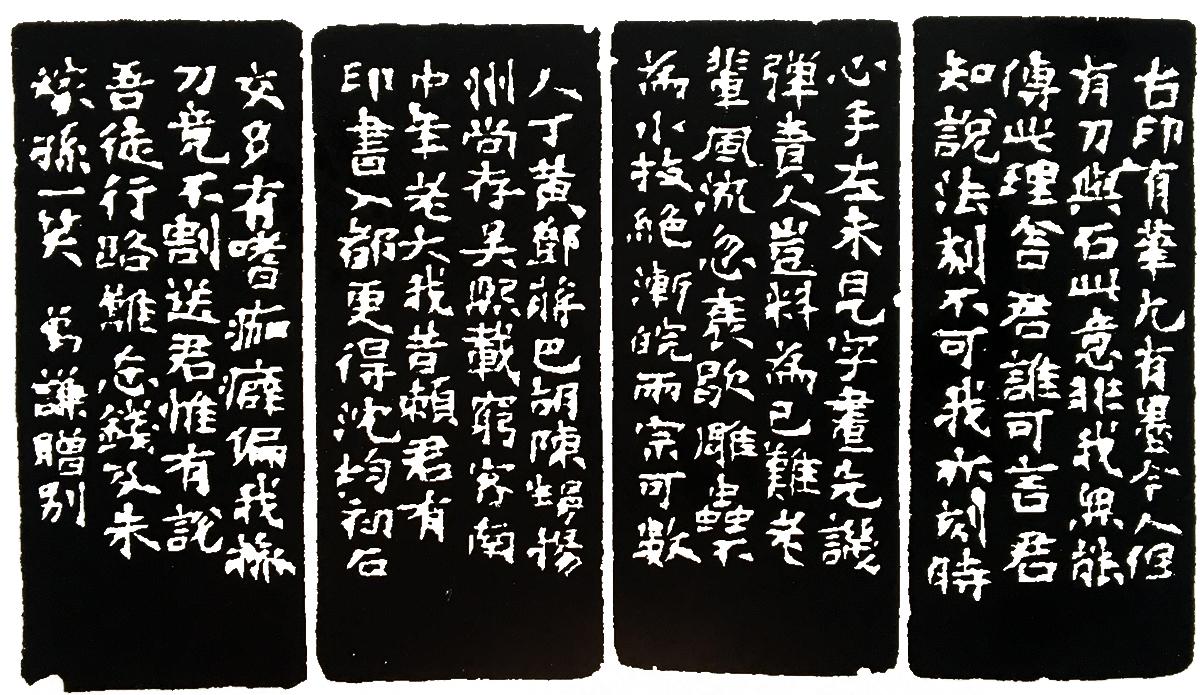 古印有筆尤有墨今人但
有刀與石此意非我無能
傳此理舍君誰可言君
知說法刻不可我亦刻時
心手左未見字畫先譏
彈責人豈料為己難老
輩風流忽衰歇雕蟲不
為小技絕漸皖兩宗可數
人丁黃鄧蔣巴胡陳揚
州尚存吳熙載窮客南
中年老大我昔賴君有
印書入都更得沈均初石
交多有嗜痂癖偏我操
刀竟不割送君惟有說
吾徒行路難忘錢及朱
稼孫一笑 謙贈別